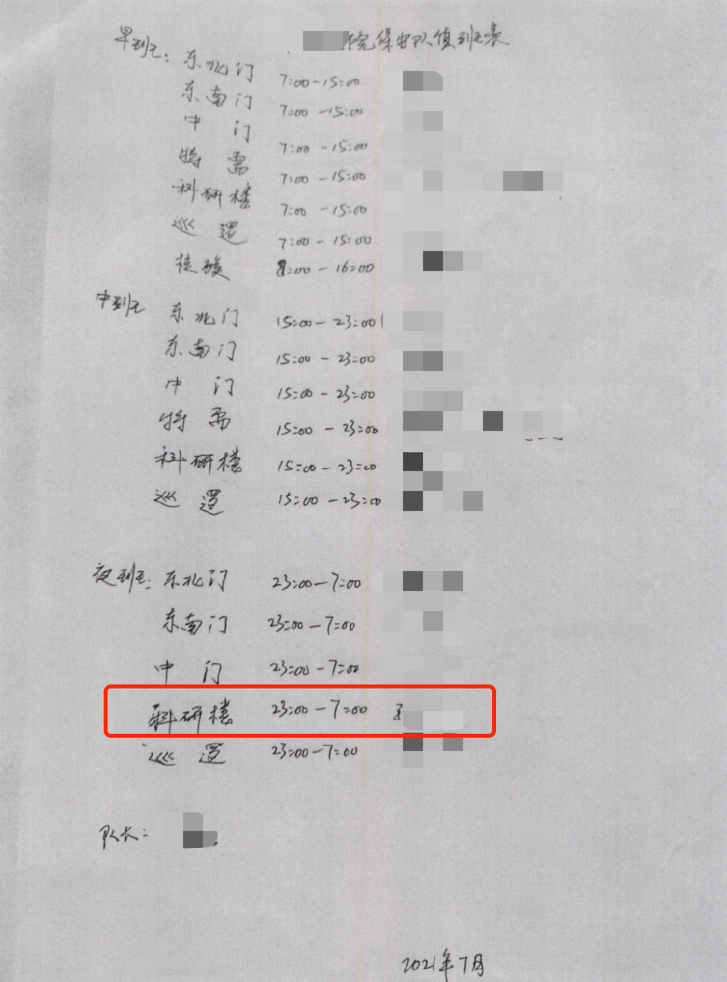 院保安队值班表
早班: 东北门 7:00-15:00
东南门 7:00-15:00
中门 7:00-15:00
特需 7:00-15:00
科研楼 7:00-15:00
巡逻 7:00-15:00
核酸 8:00-16:00
中班 东北门 15:00-23:00
东南门 15:00-23:00
中门 15:00-23:00
特需 15:00-23:00
科研楼 15:00-23:00
巡逻 15:00-23:00
夜班: 东北门 23:00-7:00
东南门 23:00-7:00
中门 23:00-7:00
科研楼 23:00-7:00
巡逻 23:00-7:00
队长:
2021年7月